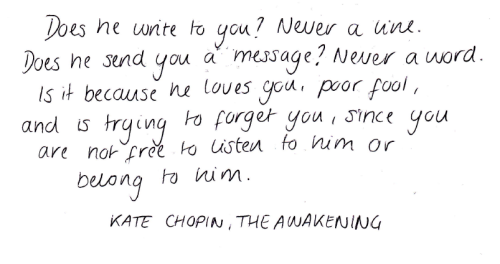 Does he write to you? Never a line.
Does he send you a message? Never a word.
Is it because he loves you, poor fool,
and is trying to forget you, since you
are not free to listen to him or
belong to him.
KATE CHOPIN, THE AWAKENING